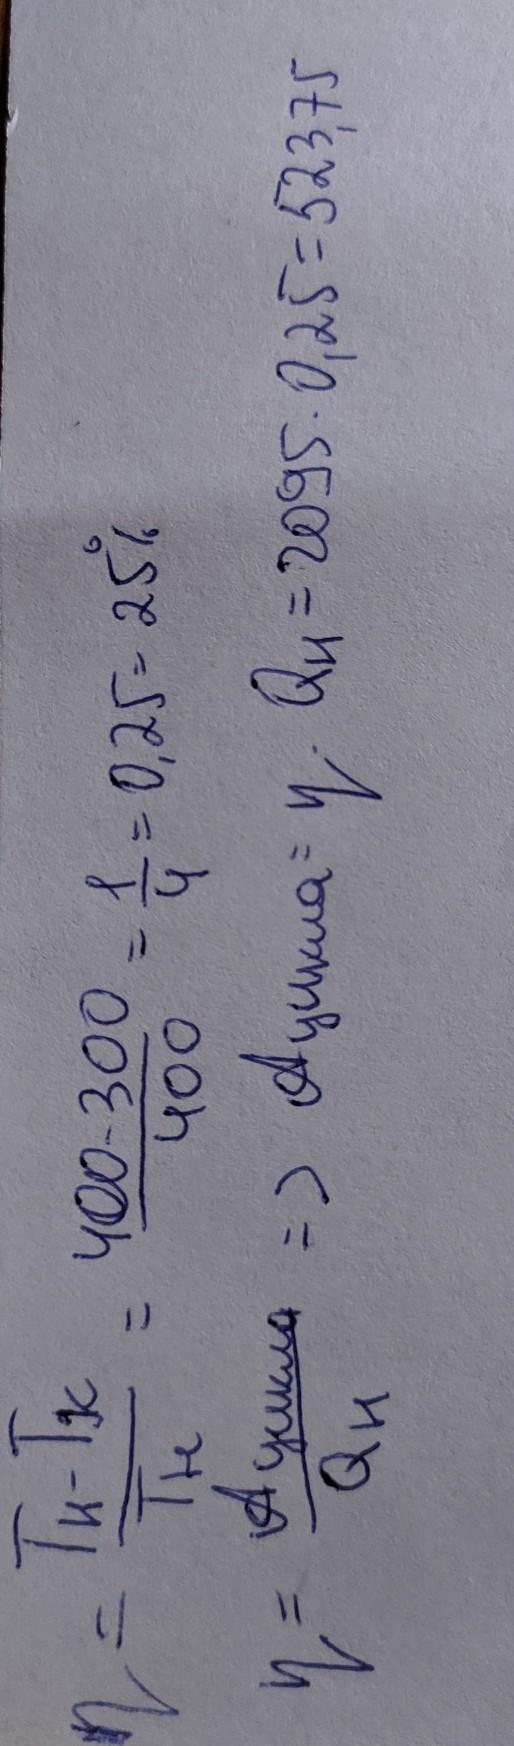 η = (Tн - Tх)/Tн = (400-300)/400 = 1/4 = 0,25 = 25%
η = Aцикла/Qн => Aцикла = η · Qн = 2095 · 0,25 = 523,75